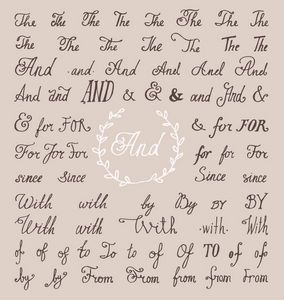 The The The The The The The
The The The The The The The
And and And And And And
And and AND & & and And &
& for FOR And & for FOR
For For For for for For
since since Since since
With with by By BY BY
With with With with With
of of of to To to of Of TO of of
by by From From from From